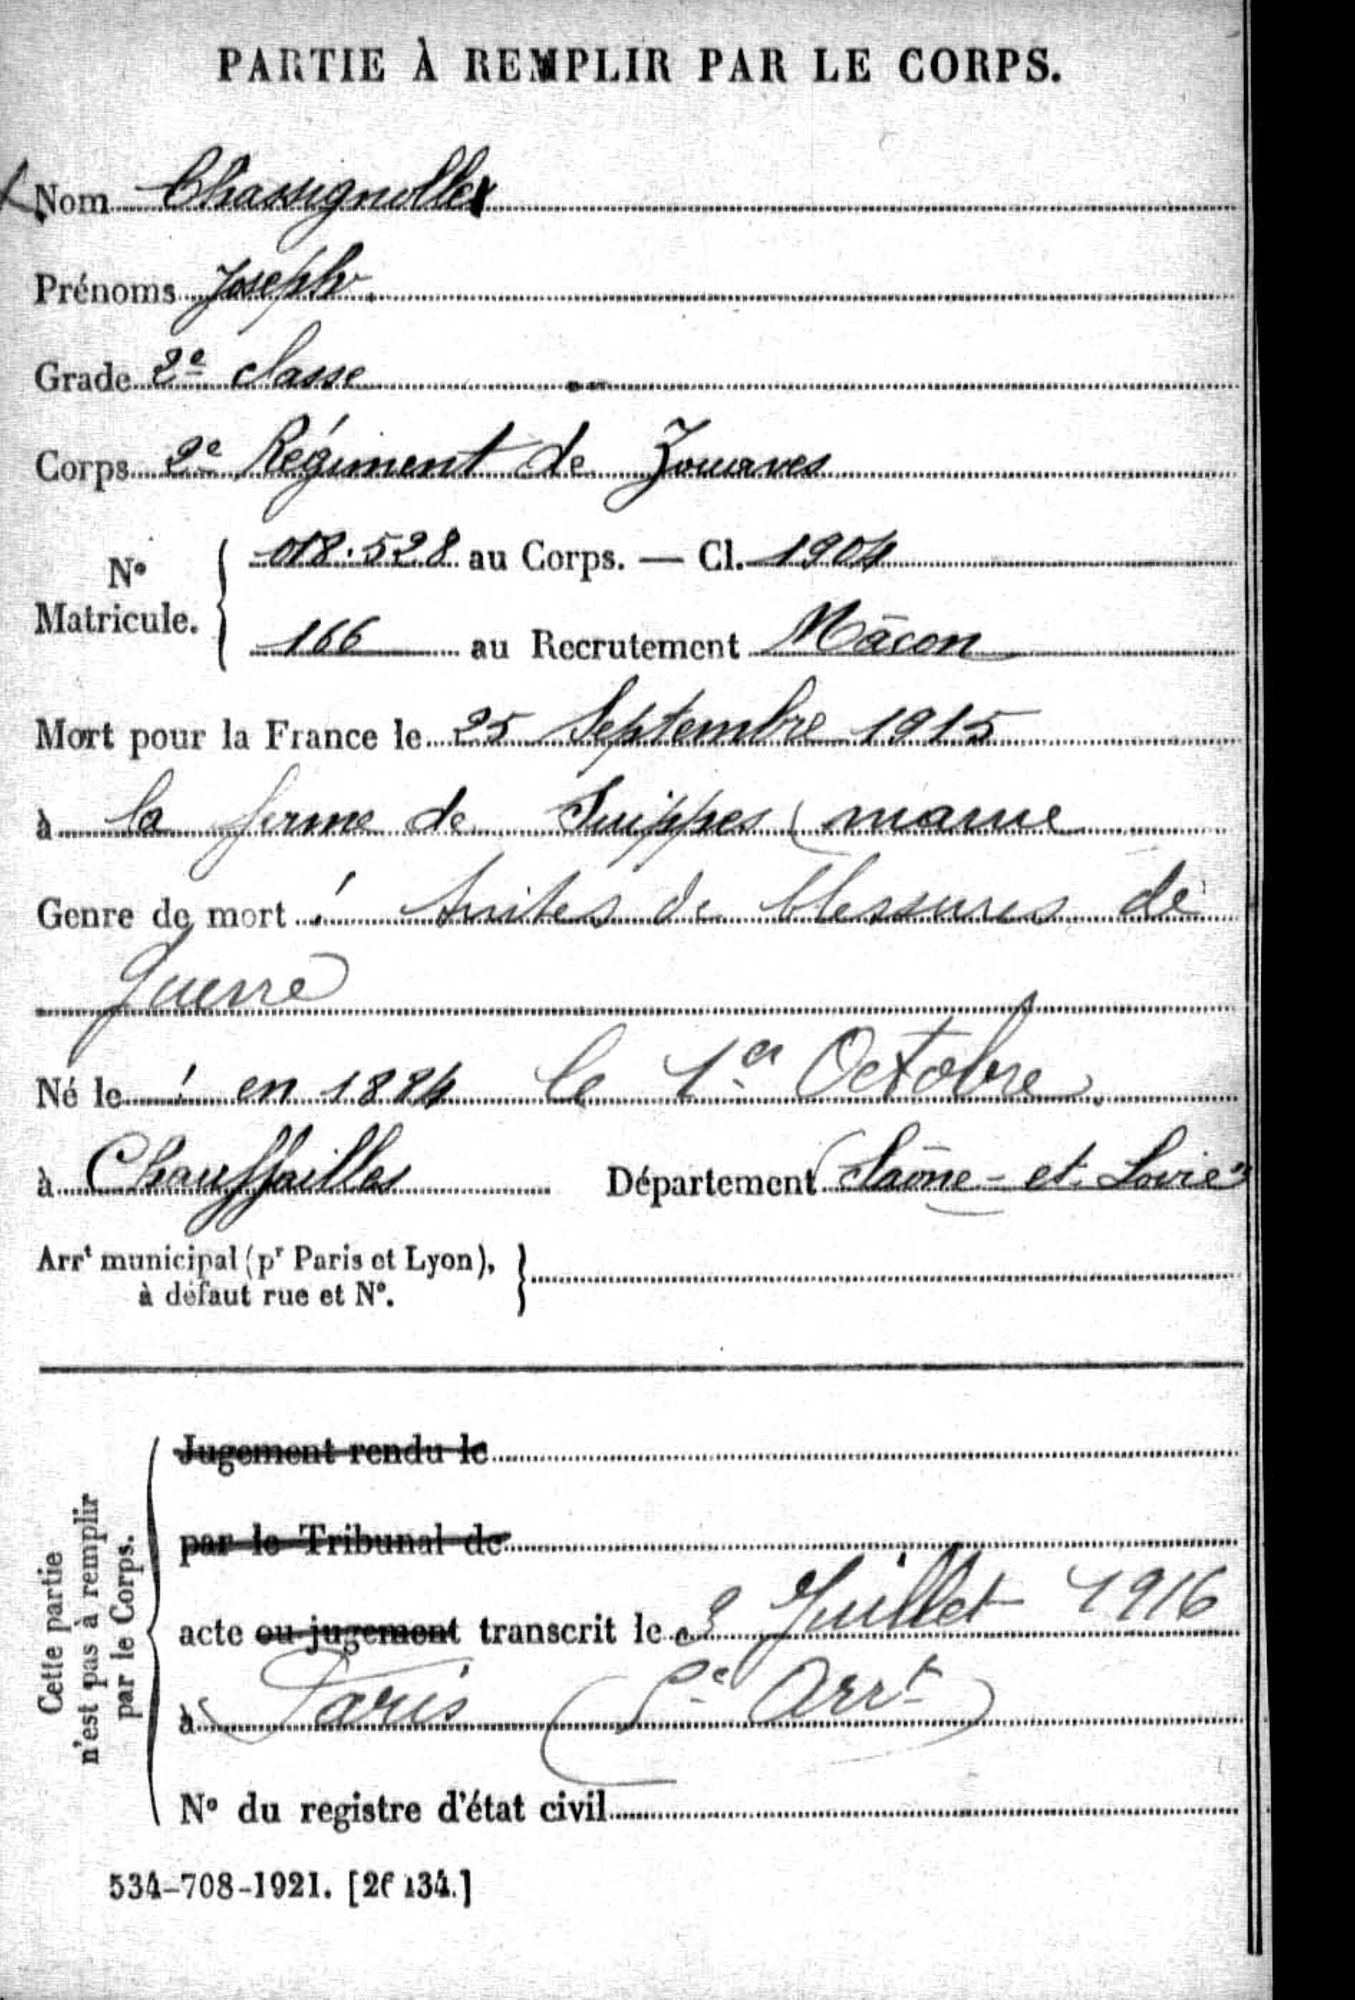 PARTIE À REMPLIR PAR LE CORPS.
Nom Chassignolle
Prénoms Joseph.
Grade 2e classe
Corps 2e Régiment de Zouaves
No Matricule. 018.528 au Corps. — Cl. 1904
166 au Recrutement Mâcon
Mort pour la France le 25 Septembre 1915
à la ferme de Suippes (marne
Genre de mort Suites de blessures de
Guerre
Né le en 1884 le 1er Octobre.
à Chauffailles Département (Saône-et-Loire)
Arrt municipal (pr Paris et Lyon),
à défaut rue et No.
Cette partie
n'est pas à remplir
par le Corps.
Jugement rendu le
par le Tribunal de
acte ou jugement transcrit le 3 Juillet 1916
à Paris ( Arrt)
No du registre d'état civil
534-708-1921. [26134.]